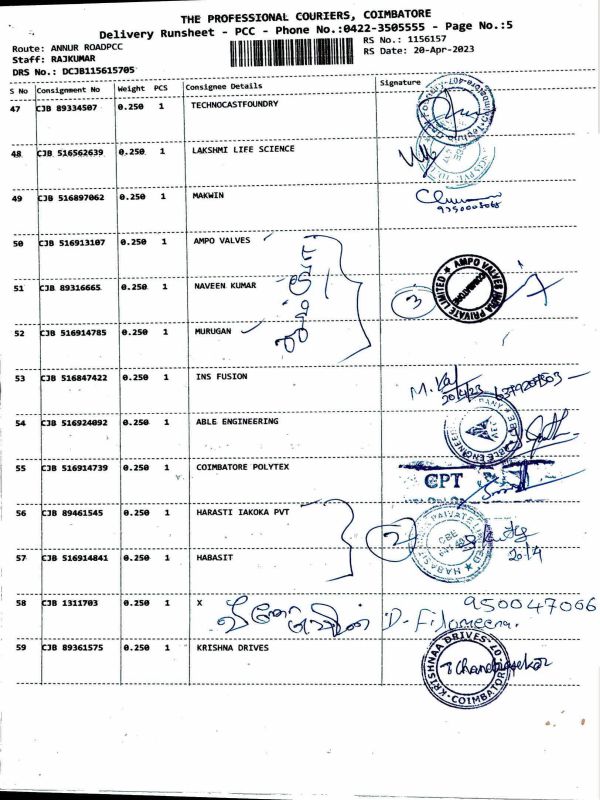 THE PROFESSIONAL COURIERS, COIMBATORE
Delivery Runsheet - PCC - Phone No.:0422-3505555 - Page No.:5
Route: ANNUR ROADPCC
RS No.: 1156157
Staff: RAJKUMAR
RS Date: 20-Apr-2023
DRS No.: DCJB115615705
S No Consignment No Weight PCS Consignee Details Signature
47 CJB 89334507 0.250 1 TECHNOCASTFOUNDRY
48 CJB 516562639 0.250 1 LAKSHMI LIFE SCIENCE
49 CJB 516897062 0.250 1 MAKWIN
50 CJB 516913107 0.250 1 AMPO VALVES
51 CJB 89316665 0.250 1 NAVEEN KUMAR 3 AMPO VALVES INDIA PRIVATE LIMITED COIMBATORE
52 CJB 516914785 0.250 1 MURUGAN
53 CJB 516847422 0.250 1 INS FUSION
20/4/23
54 CJB 516924092 0.250 1 ABLE ENGINEERING
55 CJB 516914739 0.250 1 COIMBATORE POLYTEX CPT
56 CJB 89461545 0.250 1 HARASTI IAKOKA PVT 2
57 CJB 516914841 0.250 1 HABASIT HABASIT PRIVATE LIMITED
20/4
58 CJB 1311703 0.250 1 X D. Filomeena. 950047066
59 CJB 89361575 0.250 1 KRISHNA DRIVES KRISHNAA DRIVES COIMBATORE